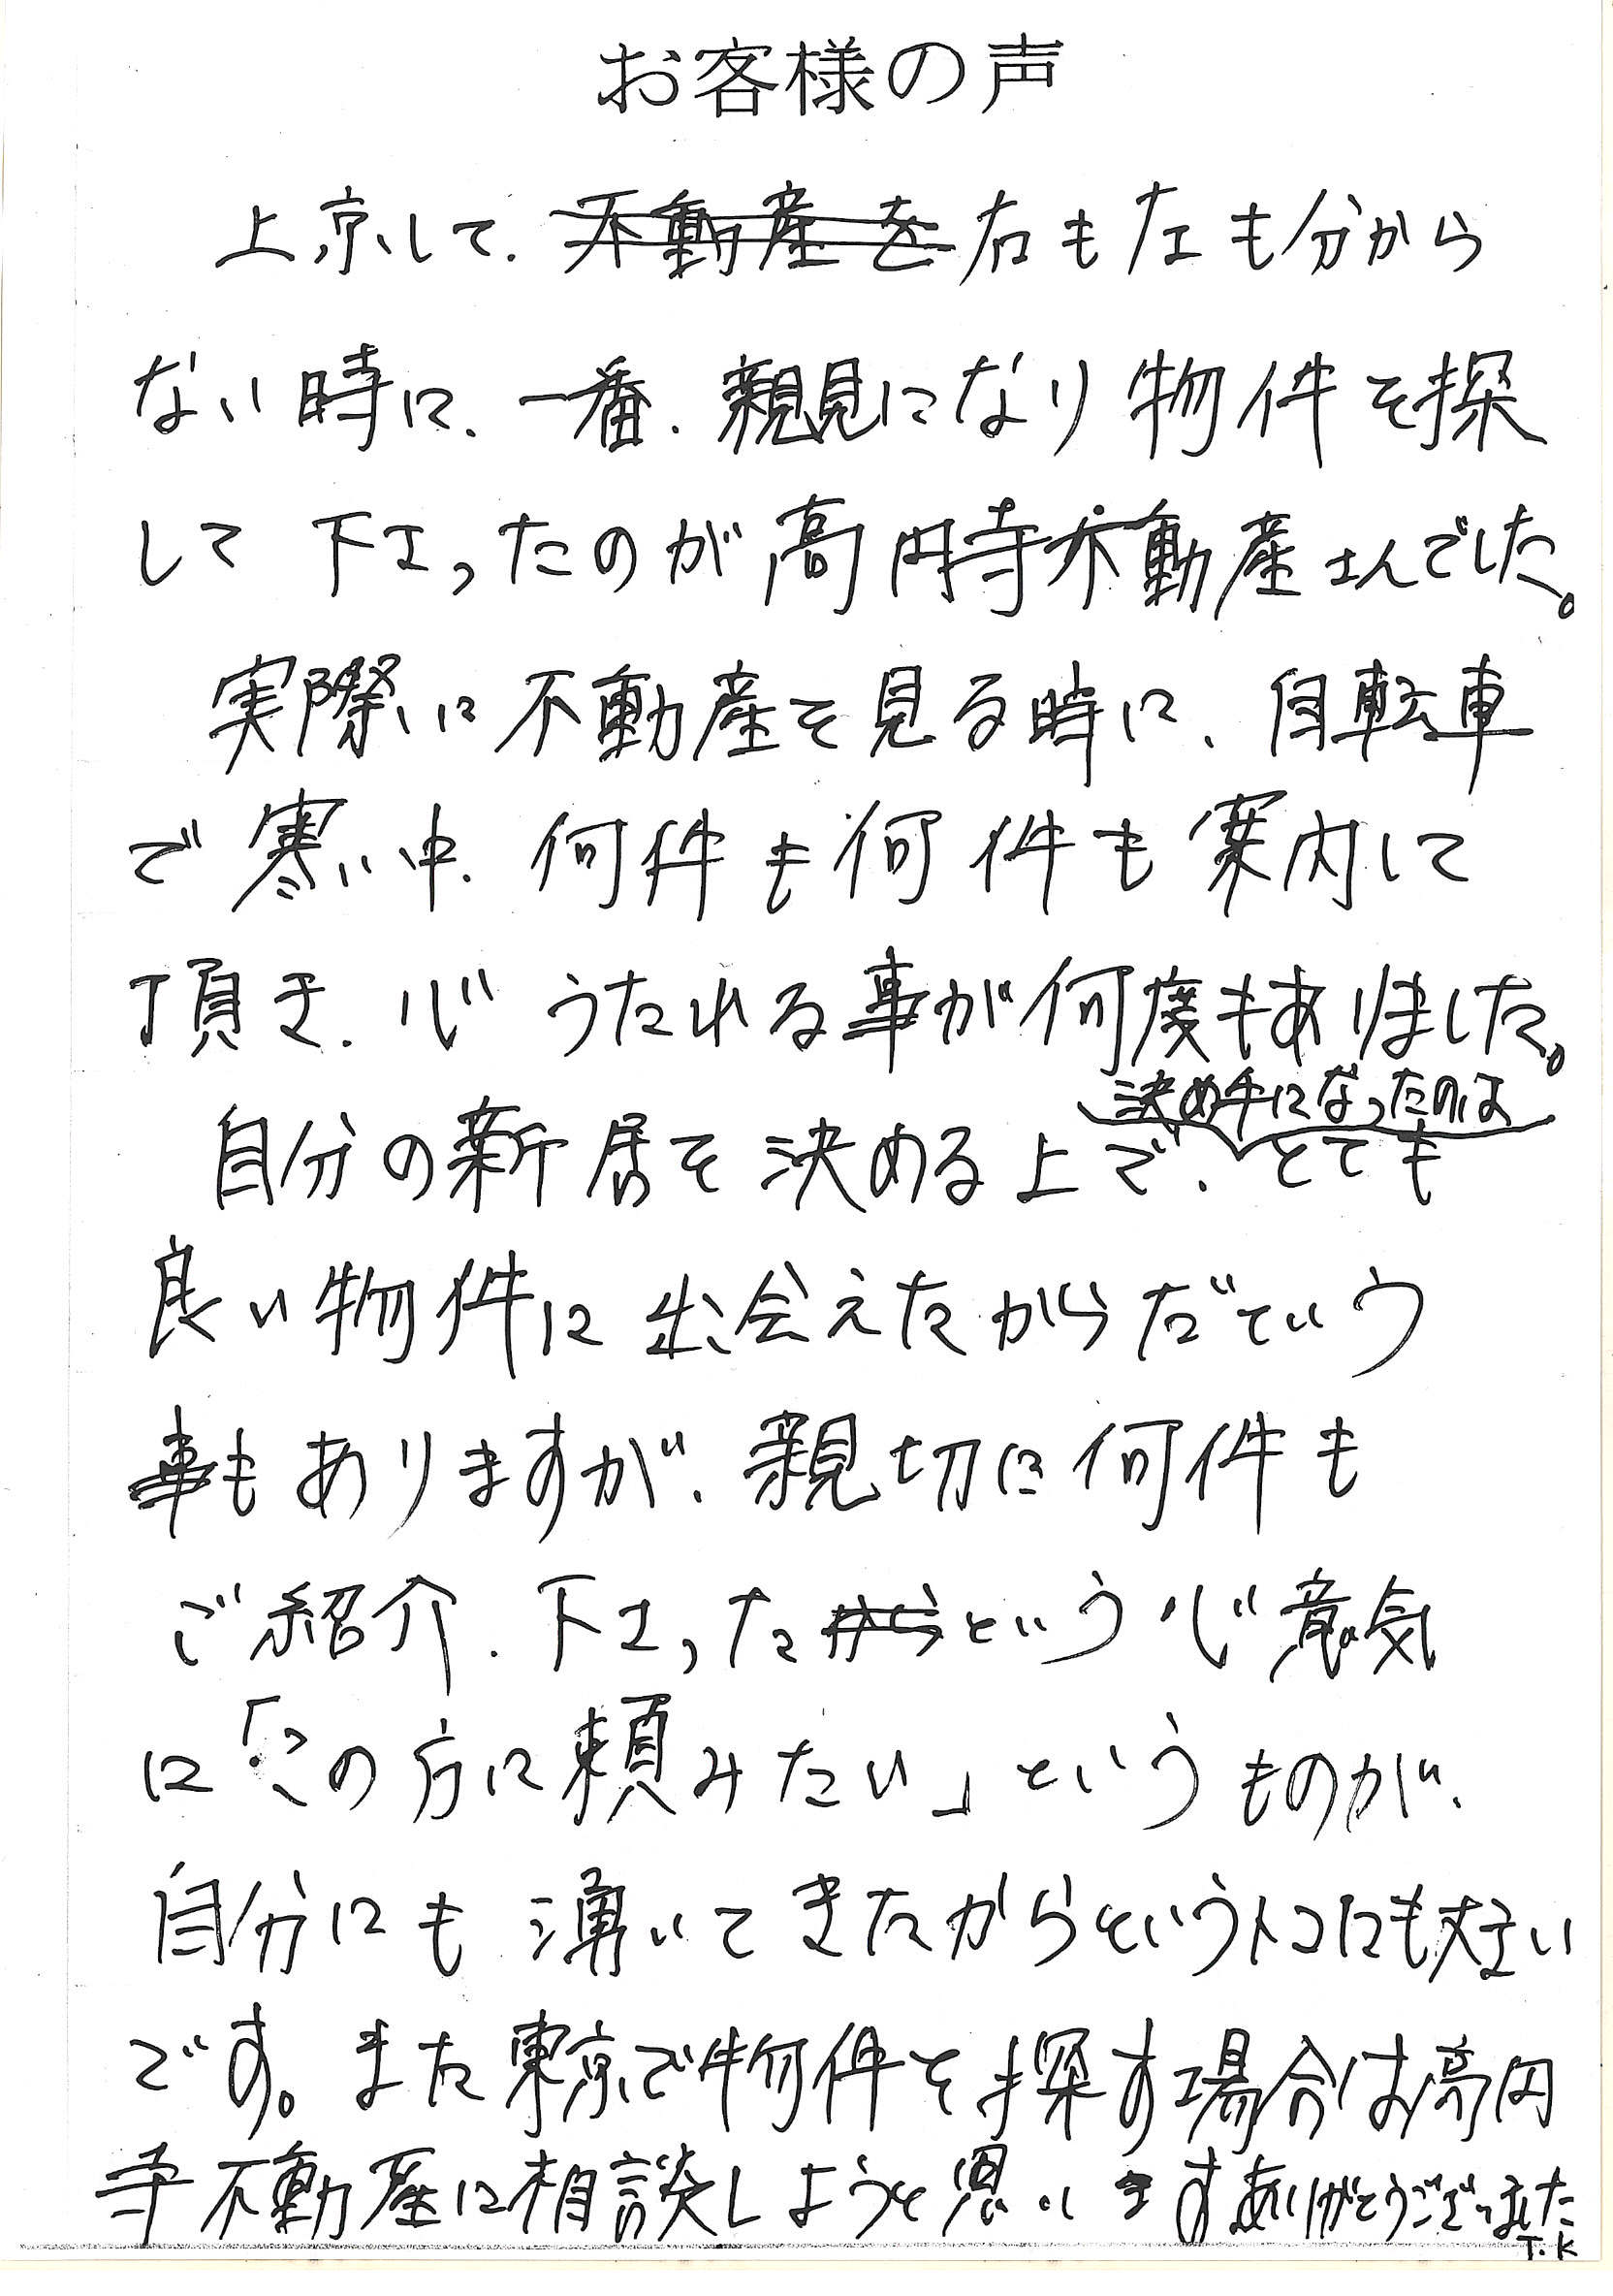 お客様の声
上京して、不動産を右も左も分から
ない時に、一番、親見になり物件を探
して下さったのが高円寺不動産さんでした。
実際に不動産を見る時に、自転車
で寒い中、何件も何件も案内して
頂き、心うたれる事が何度もありました。
決め手になったのは
自分の新居を決める上で、とても
良い物件に出会えたからだという
事もありますが、親切に何件も
ご紹介、下さったからという心意気
に「この方に頼みたい」というものが、
自分にも湧いてきたからというトコにも大きい
です。また東京で物件を探す場合は高円
寺不動産に相談しようと思いますありがとうございました
T.K